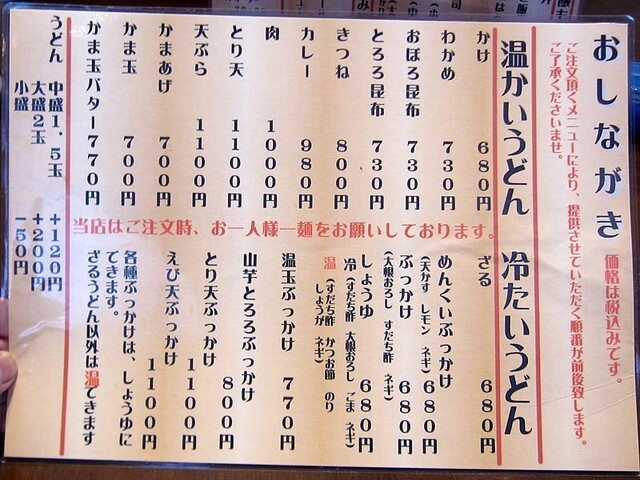 おしながき
価格は税込みです。
ご注文頂くメニューにより、提供させていただく順番が前後致します。
ご了承くださいませ。
温かいうどん
かけ 680円
わかめ 730円
おぼろ昆布 730円
とろろ昆布 730円
きつね 800円
カレー 980円
肉 1000円
とり天 1100円
天ぷら 1100円
かまあげ 700円
かま玉 700円
かま玉バター 770円
当店はご注文時、お一人様一麺をお願いしております。
冷たいうどん
ざる 680円
めんくいぶっかけ 680円
(天かす レモン ネギ)
ぶっかけ 680円
(大根おろし すだち酢 ネギ)
しょうゆ 680円
冷(すだち酢 大根おろし ごま ネギ)
温(すだち酢 かつお節 のり
しょうが ネギ)
温玉ぶっかけ 770円
山芋とろろぶっかけ 800円
とり天ぶっかけ 1100円
えび天ぶっかけ 1100円
各種ぶっかけは、しょうゆに
できます。
ざるうどん以外は温できます
うどん 中盛1、5玉 +120円
大盛2玉 +200円
小盛 -50円